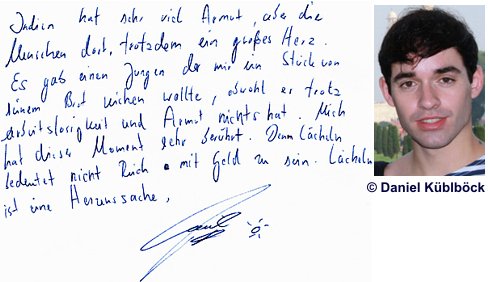 Indien hat sehr viel Armut, aber die
Menschen dort, trotzdem ein großes Herz.
Es gab einen Jungen der mir ein Stück von
seinem Brot reichen wollte, obwohl er trotz
arbeitslosigkeit und Armut nichts hat. Mich
hat dieser Moment sehr berührt. Denn Lächeln
bedeutet nicht Reich mit Geld zu sein. Lächeln
ist eine Herzenssache,
© Daniel Küblböck